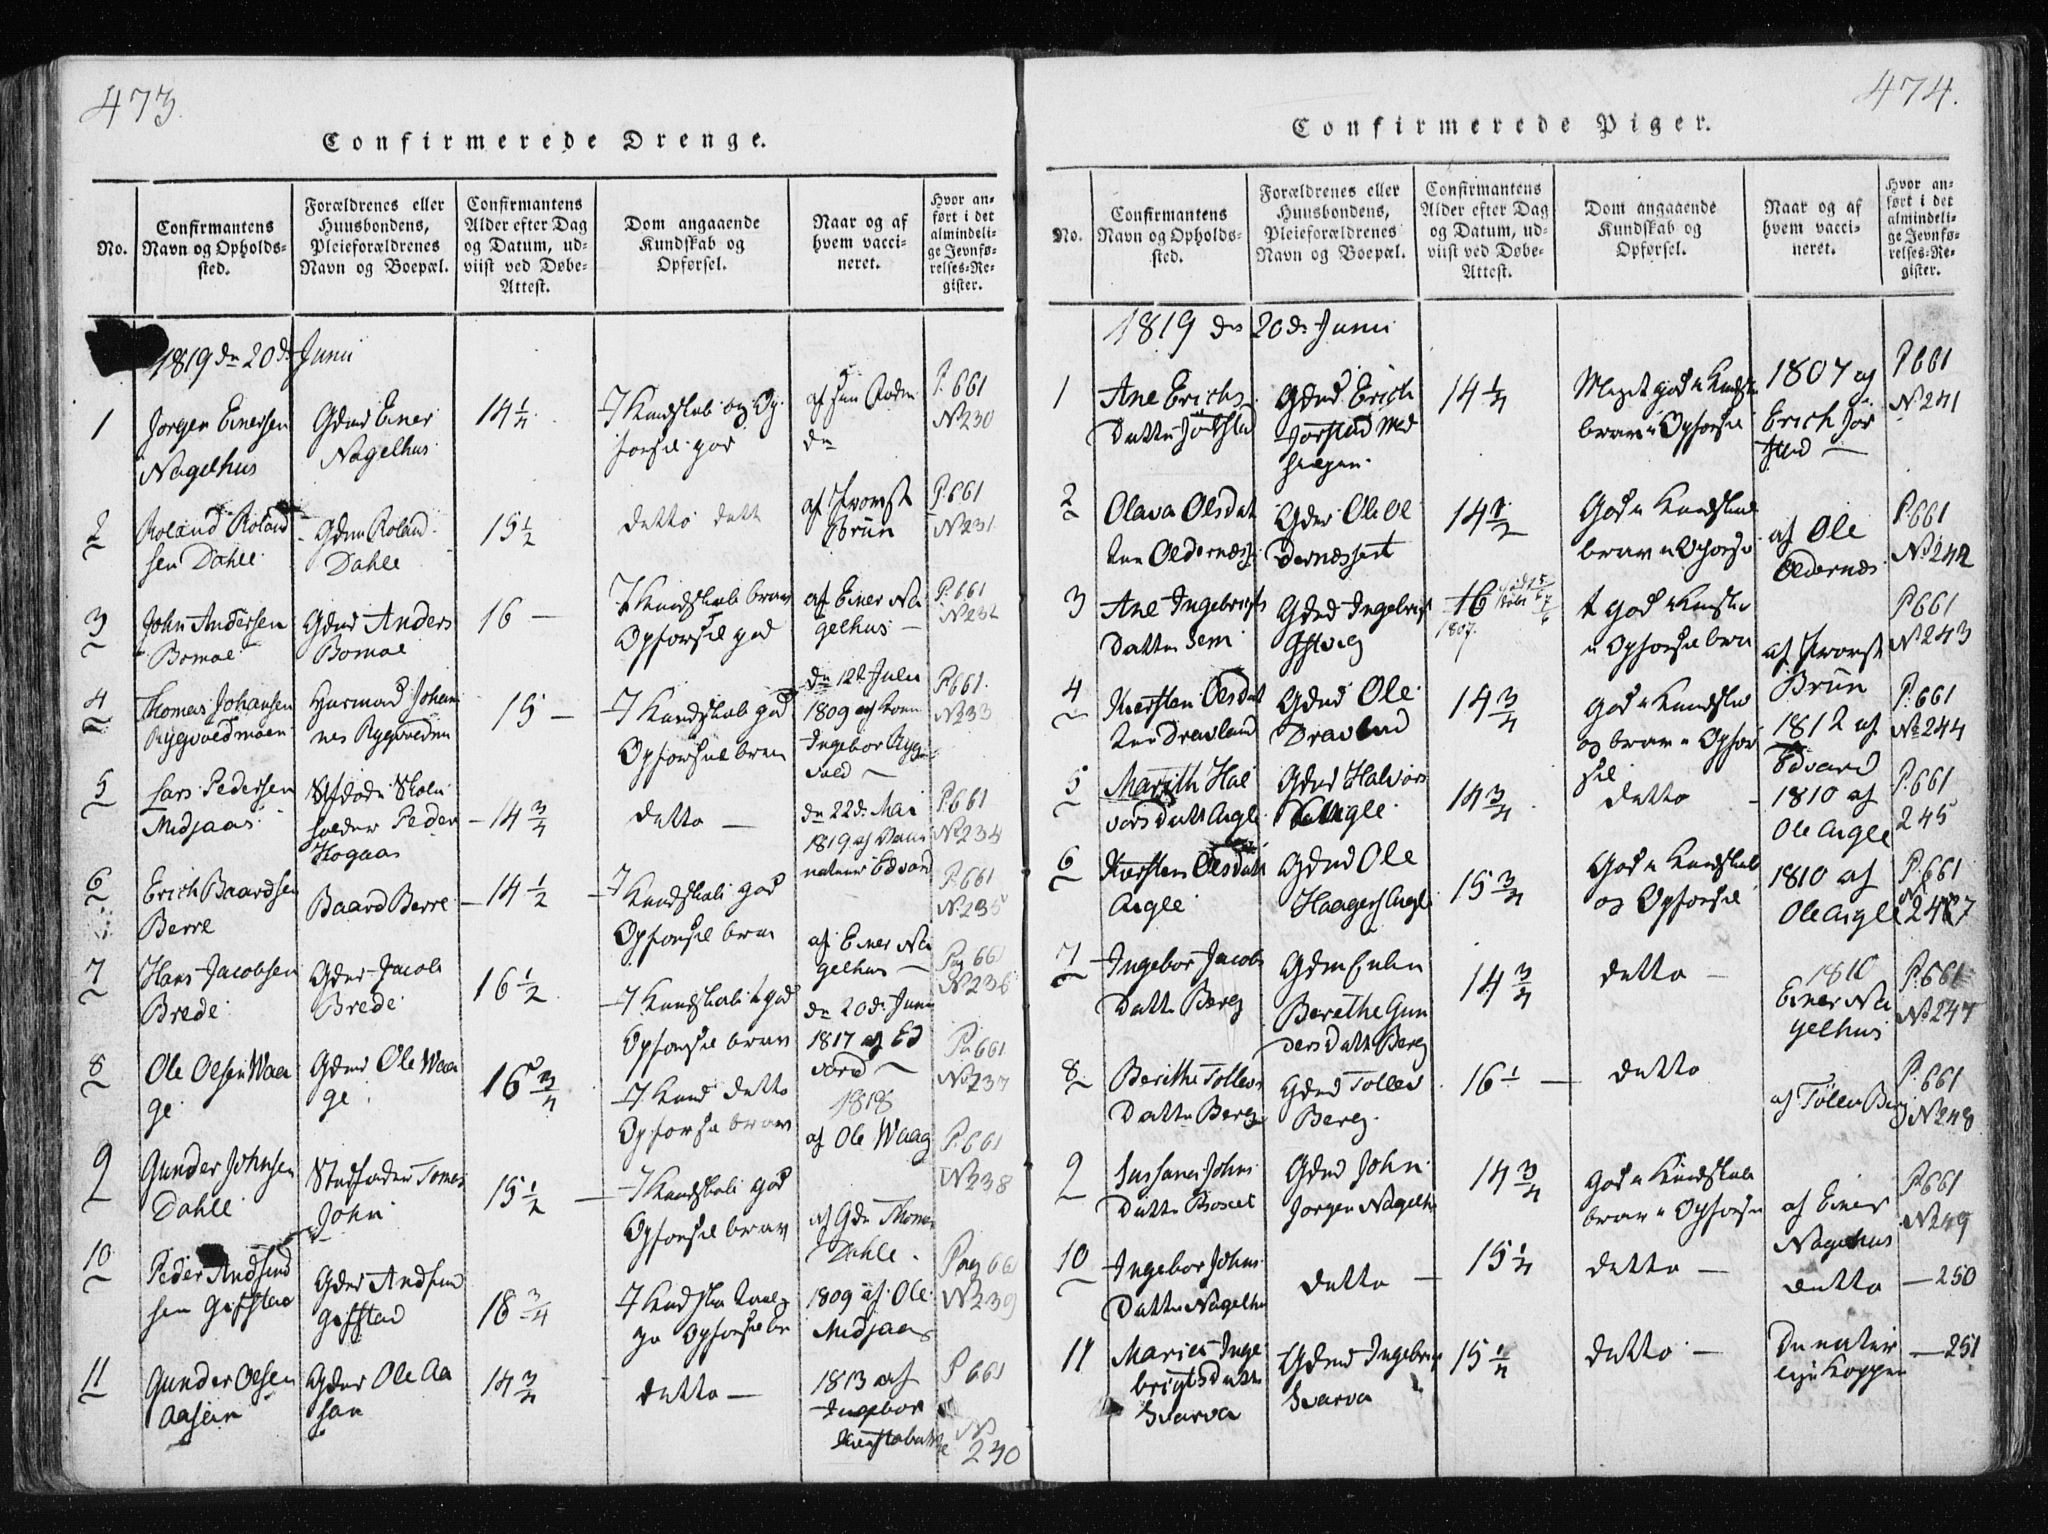 473.
Confirmerede Drenge.
No.
Confirmantens
Navn og Opholds-
sted.
Forældrenes eller
Huusbondens,
Pleieforældrenes
Navn og Boepæl.
Confirmantens
Alder efter Dag
og Datum, ud-
viist ved Døbe-
Attest.
Dom angaaende
Kundskab og
Opførsel.
Naar og af
hvem vacci-
neret.
Hvor an-
ført i det
almindeli-
ge Jevnfø-
relses-Re-
gister.
1819 dn 20de Junii
1
Jorgen Einersen
Nagelhus
Gdmd Einer
Nagelhus
14 1/4
I Kundskab og Op-
forsel god
P. 661
No 230
2
Roland Roland
sen Dahle
Gdmd Roland
Dahle
15 1/2
detto dett
af Provst
Brün
P. 661
No 231
3
John Andersen
Bomoe
Gdmd Anders
Bomoe
16 —
I Kundskab brav
Opforsel god
af Einer Na
gelhus —
P. 661
No 232
4
Thomas Johansen
Rygvoldmoen
Huusmand Johan
nes
15 —
I Kundskab god
Opforsel brav
dn 12te Julii
1809 af
Ingebor Ryg
vold —
P. 661
No 233
5
Lars Pedersen
Midjaas
Peder
Hogaas
14 3/4
detto —
dn 22de Mai
1819 af
Edvard
P. 661
No 234
6
Erich Baardsen
Berre
Baard Berre
14 1/2
I Kundskab god
Opforsel brav
af Einer Na
gelhus —
P. 661
No 235
7
Hans Jacobsen
Brede
Gdmd Jacob
Brede
16 1/2
I Kundskab t god
Opforsel brav
dn 20de Junii
1817 af Ed
vard —
Pag 661
No 236
8
Ole Olsen Waa
ge
Gdmd Ole Waa
ge
16 3/4
I Kund detto
Opforsel brav
1818
af Ole Waag
P. 661
No 237
9
Gunder Johnsen
Dahle
Stedfader Tomes
John
15 1/2
I Kundskab god
Opforsel brav
af Gdm Thomas
Dahle.
P. 661
No 238
10
Peder Andfind
sen Gifstad
Gdmd Andfind
Gifstad
18 3/4
1809 af Ole
Midjaas
Pag 66
No 239
11
Gunder Olsen
Aasen
Gdmd Ole Aa
sen
14 3/4
detto —
1813 af
Ingebor
P 661
No
240
474.
Confirmerede Piger.
No.
Confirmantens
Navn og Opholds-
sted.
Forældrenes eller
Huusbondens,
Pleieforældrenes
Navn og Boepæl.
Confirmantens
Alder efter Dag
og Datum, ud-
viist ved Døbe-
Attest.
Dom angaaende
Kundskab og
Opførsel.
Naar og af
hvem vacci-
neret.
Hvor an-
ført i det
almindeli-
ge Jevnfø-
relses-Re-
gister.
1819 dn 20de Junii
1
Ane Erichs
Datter Jørstad
Gdmd Erich
Jørstad
14 1/4
Meget god Kundsk
brav Opforsel
1807 af
Erich Jør
stad —
P 661
No 241
2
Olava Olsdat
ter Oldernæss
Gdmd Ole Ol
dernæss
14 1/2
God Kundskab
brav Opforsel
af Ole
Oldernæs
P 661
No 242
3
Ane Ingebrigts
Datter Sem
Gdmd Ingebrigt
16
1807.
t god Kundskab
Opforsel brav
af Provst
Brün
P 661
No 243
4
Kiersten Olsdat
ter Dravland
Gdmd Ole
Dravland
14 3/4
God Kundskab
og brav Opfor
sel
1812 af
Edvard
P. 661
No 244
5
Marith Hal
vorsdatt Aigle
Gdmd Halvor
Aigle
14 3/4
detto
1810 af
Ole Aigle
P. 661
245
6
Kiersten Olsdatt
Aigle
Gdmd Ole
15 3/4
God Kundskab
og Opforsel
1810 af
Ole Aigle
P. 661
7
Ingebor Jacobs
Datter Berg
Berethe Gun
dersdatt Berg
14 3/4
detto —
1810
Einer Na
gelhus
P. 661
No 247
8
Berithe Tollevs
Datter Berg
Gdmd Tollev
Berg.
16 —
detto
af Tollev Berg
P. 661
No 248
9
Susanna Johns
Datter
Gdmd John
Jorgen Nagelh
14 3/4
god Kundskab
brav Opforsel
af Einer
Nagelhus
P 661
No 249
10
Ingebor Johns
Datter Nagelhu
detto —
15 1/4
detto —
detto
— 250
11
Marie Inge
brigts Datter
Svarva
Gdmd Ingebrigt
Svarva
15 1/4
detto —
De naturlige
Kopper
— 251